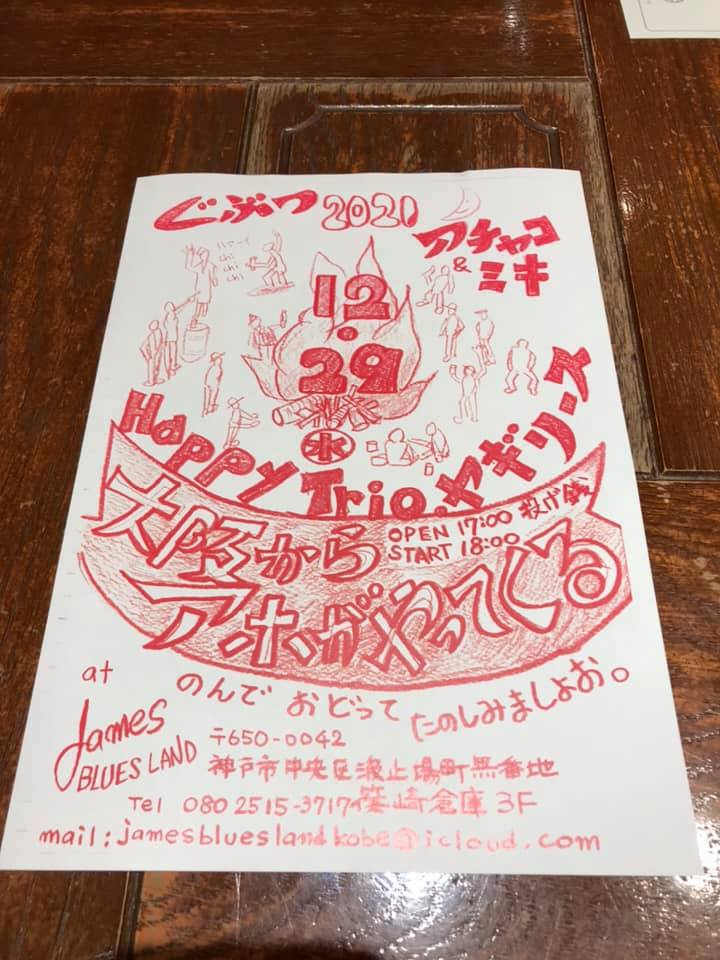 ぐぶつ 2021
アチャコ
& ミキ
ハァーイ
chi
chi
chi
12
・
29
㊌
Happy Trio、ヤギリース
大阪から
OPEN 17:00 投げ銭
START 18:00
アホがやってくる
のんで おどって たのしみましょお。
at
James
BLUES LAND
〒650-0042
神戸市中央区波止場町無番地
Tel 080 2515-3717 篠崎倉庫 3F
mail:jamesblueslandkobe@icloud.com